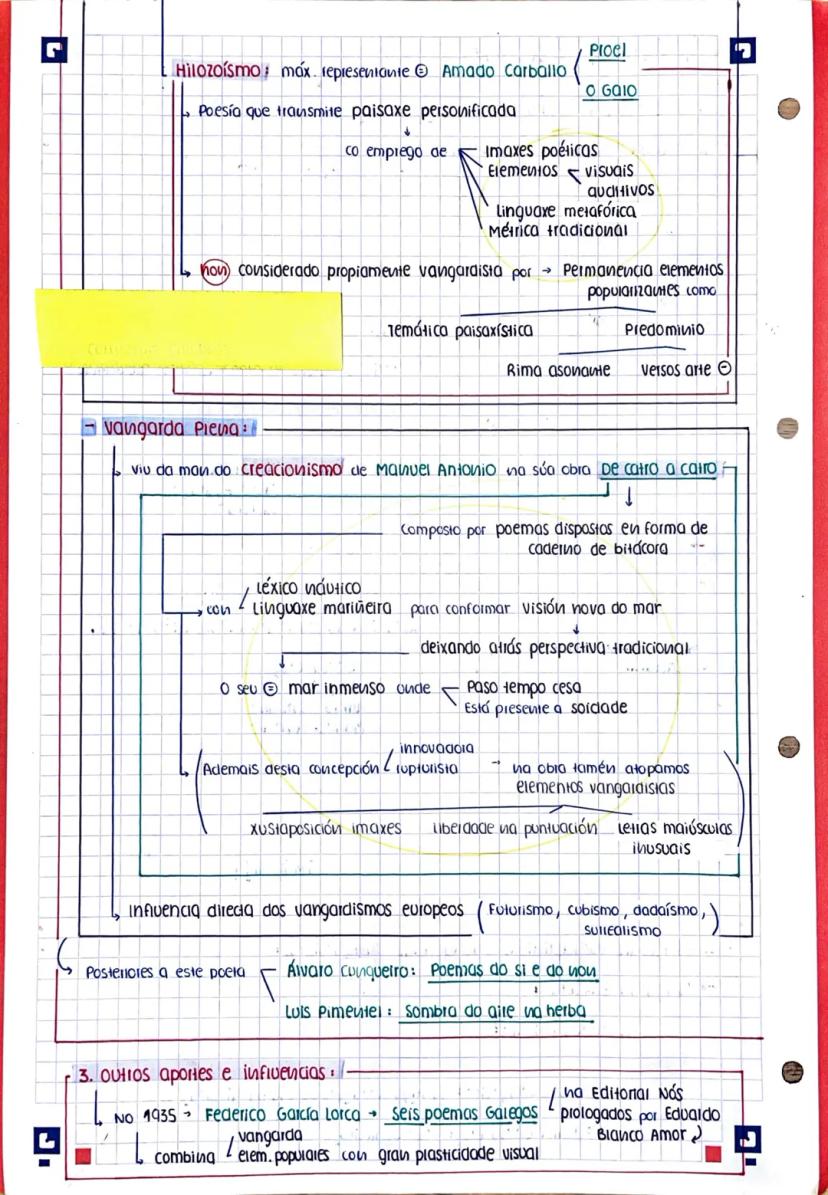 Hilozoísmo: máx. representante ⊜ Amado Carballo < Proel
O Galo
↳ Poesía que transmite paisaxe personificada
↓
co emprego de Imaxes poéticas
Elementos < visuais
auditivos
Linguaxe metafórica
Métrica tradicional
↳ non considerado propiamente vangardista por → Permanencia elementos
popularizantes como
Temática paisaxística Predominio
Rima asonante Versos arte ⊖
- Vangarda Plena:
↳ viu da man do creacionismo de Manuel Antonio na súa obra De catro a catro
↓
Composto por poemas dispostos en forma de
caderno de bitácora
léxico náutico
→ con < Linguaxe mariñeira para conformar visión nova do mar
↓
deixando atrás perspectiva tradicional
↓
O seu ⊜ mar inmenso onde < Paso tempo cesa
Está presente a soidade
innovadora
↳ (Ademais desta concepción < rupturista → na obra tamén atopamos
elementos vangardistas
xustaposición imaxes liberdade na puntuación letras maiúsculas
inusuais)
↳ Influencia directa dos vangardismos europeos (Futurismo, cubismo, dadaísmo,
surrealismo)
↳ Posteriores a este poeta < Álvaro Cunqueiro: Poemas do si e do non
Luis Pimentel: Sombra do aire na herba
3. Outros aportes e influencias:
na Editorial Nós
↳ No 1935 → Federico García Lorca → Seis poemas Galegos < prologados por Eduardo
Blanco Amor
vangarda
↳ combina < elem. populares con gran plasticidade visual